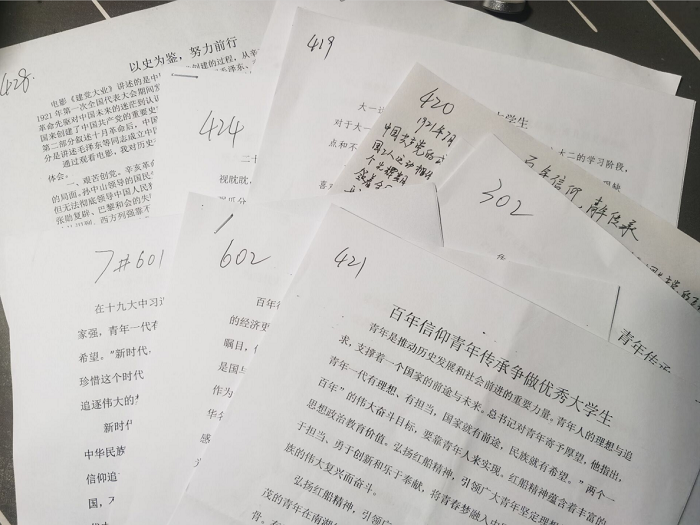 428.
以史为鉴，努力前行
电影《建党大业》讲述的是中
创建的过程，从辛
1921年第一次全国代表大会期间发
革命先驱对中国未来的迷茫到认识
国来创建了中国共产党的重要史
第二部分叙述十月革命后，中国
分是讲述毛泽东等同志成立中国
通过观看电影，我对历史
体会。
一、艰苦创党。辛亥革命
的局面。孙中山领导的国民
但无法彻底领导中国人民
张勋复辟、巴黎和会的失
419
大一
大学生
对于大一
大二的学习阶段，
点和不
424
二十
视眈眈，
420
1921年7月
中国共产党的
百年信仰，青年传承
302
7#601
在十九大中习近
家强，青年一代有
希望。”新时代
珍惜这个时代
追逐伟大的梦
新时代
中华民族
信仰追
国，
602
百年
的经济更
瞩目，
是国与
作为
华名
感
青年传承
421
百年信仰青年传承争做优秀大学生
青年是推动历史发展和社会前进的重要力量。青年人的理想与追
求，支撑着一个国家的前途与未来。总书记对青年寄予厚望，他指出，
青年一代有理想、有担当，国家就有前途，民族就有希望。”两个一
百年”的伟大奋斗目标，要靠青年人来实现、红船精神蕴含着丰富的
思想政治教育价值。弘扬红船精神，引领广大青年坚定理想
于担当、勇于创新和乐于奉献，将青春梦融入中
族的伟大复兴而奋斗。
弘扬红船精神，引领广
茂的青年在南湖的
骨。在